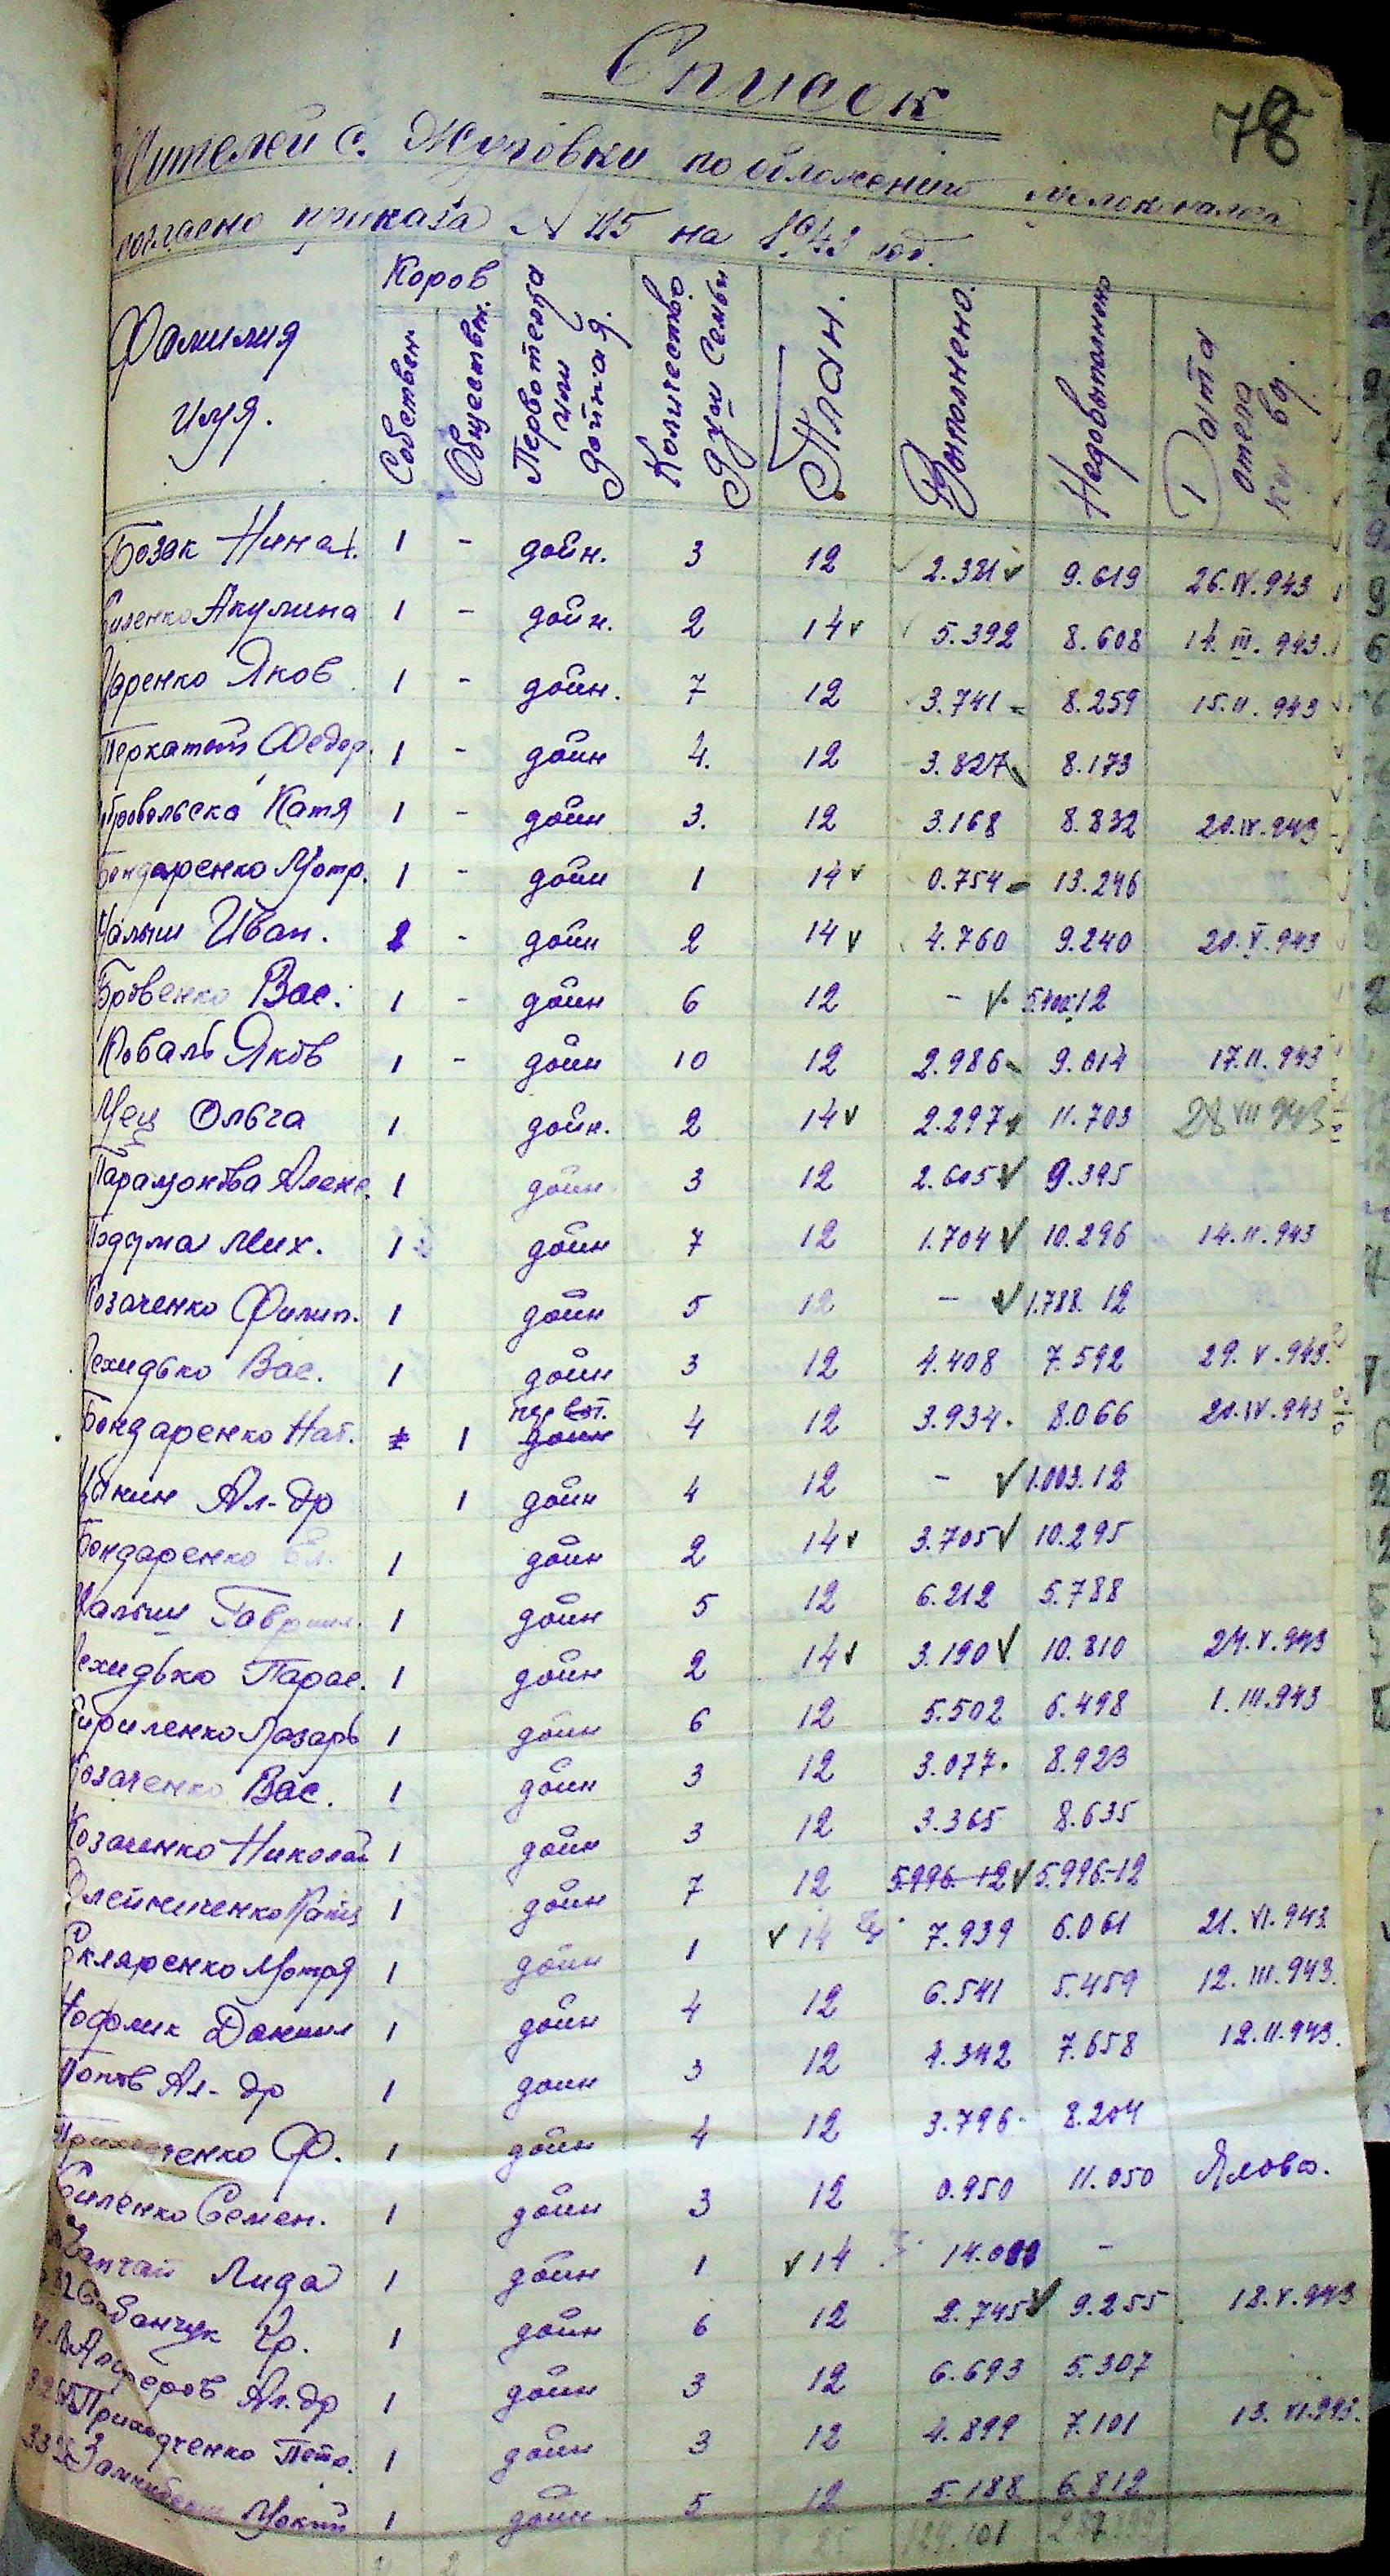 Список
78
Жителей с. Жуковки по обложению молоконалога
согласно приказа № 115 на 1943 год.
Фамилия имя. Коров Собствен Обществен. Первотелка или дойная. Количество душ семьи План. Выполнено. Недовыполнено Дата отела коровы.
Бозак Нина 1 - дойн. 3 12 2.381 9.619 26.IV.943
Акулина 1 - дойн. 2 14 5.392 8.608 14.III.943.
Яков 1 - дойн. 7 12 3.741 8.259 15.II.943
Федор. 1 - дойн 4. 12 3.827 8.173
Катя 1 - дойн 3. 12 3.168 8.832 20.IV.943
Бондаренко Мотр. 1 - дойн 1 14 0.754 13.246
Малыш Иван. 1 - дойн 2 14 4.760 9.240 20.V.943
Бровенко Вас. 1 - дойн 6 12 - 12
Коваль Яков 1 - дойн 10 12 2.986 9.014 17.II.943
Мец Ольга 1 дойн. 2 14 2.297 11.703 28 VII 943
Парамонова Алекс. 1 дойн 3 12 2.605 9.395
Подума Мих. 1 дойн 7 12 1.704 10.296 14.II.943
Козаченко Филип. 1 дойн 5 12 - 1.788. 12
Лехидько Вас. 1 дойн 3 12 4.408 7.592 29.V.943.
Бондаренко Нат. 1 первот. дойн 4 12 3.934. 8.066 20.IV.943
Ал-др 1 дойн 4 12 - 1.003. 12
Бондаренко 1 дойн 2 14 3.705 10.295
Малыш Гаврил. 1 дойн 5 12 6.212 5.788
Лехидько Парас. 1 дойн 2 14 3.190 10.810 24.V.943
Кириленко Лазарь 1 дойн 6 12 5.502 6.498 1.III.943
Козаченко Вас. 1 дойн 3 12 3.077. 8.923
Козаченко Николай 1 дойн 3 12 3.365 8.635
Олейниченко 1 дойн 7 12 5.996-12 5.996-12
Скляренко Мотря 1 дойн 1 14 7.939 6.061 21.VI.943
Данил 1 дойн 4 12 6.541 5.459 12.III.943.
Попов Ал-др 1 дойн 3 12 4.342 7.658 12.II.943.
Приходченко Ф. 1 дойн 4 12 3.796 8.204
Семен. 1 дойн 3 12 0.950 11.050 Ялова.
Чапчай Лида 1 дойн 1 14 14.000 -
Гр. 1 дойн 6 12 2.745 9.255 18.V.943
Алферов Ал-др 1 дойн 3 12 6.693 5.307
Приходченко Петр. 1 дойн 3 12 4.899 7.101 13.VI.943.
1 дойн 5 12 5.188 6.812